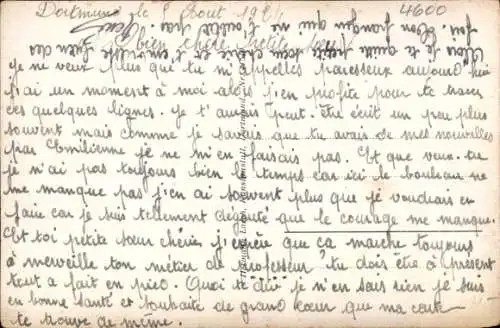 Dortmund, le 8 Août 194
4600
Ma bien chère petite sœur
Je ne veux plus que tu m'appelles paresseux aujourd'hui
j'ai un moment à moi alors j'en profite pour te tracer
ces quelques lignes. Je t'aurais peut-être écrit un peu plus
souvent mais comme je savais que tu avais de mes nouvelles
par Emilienne je ne m'en faisais pas. Et que veux-tu
je n'ai pas toujours bien le temps car ici le bouleau ne
me manque pas j'en ai souvent plus que je voudrais en
faire car je suis tellement dégouté que le courage me manque.
Et toi petite sœur chérie, j'espère que ça marche toujours
à merveille ton métier de professeur tu dois être à présent
tout a fait en pied. Quoi te dire je n'en sais rien je suis
en bonne santé et souhaite de grand cœur que ma carte
te trouve de même.
Alors je te quitte petite sœur chérie et t'embrille bien des
fois Ton frangin qui ne t'oublie pas